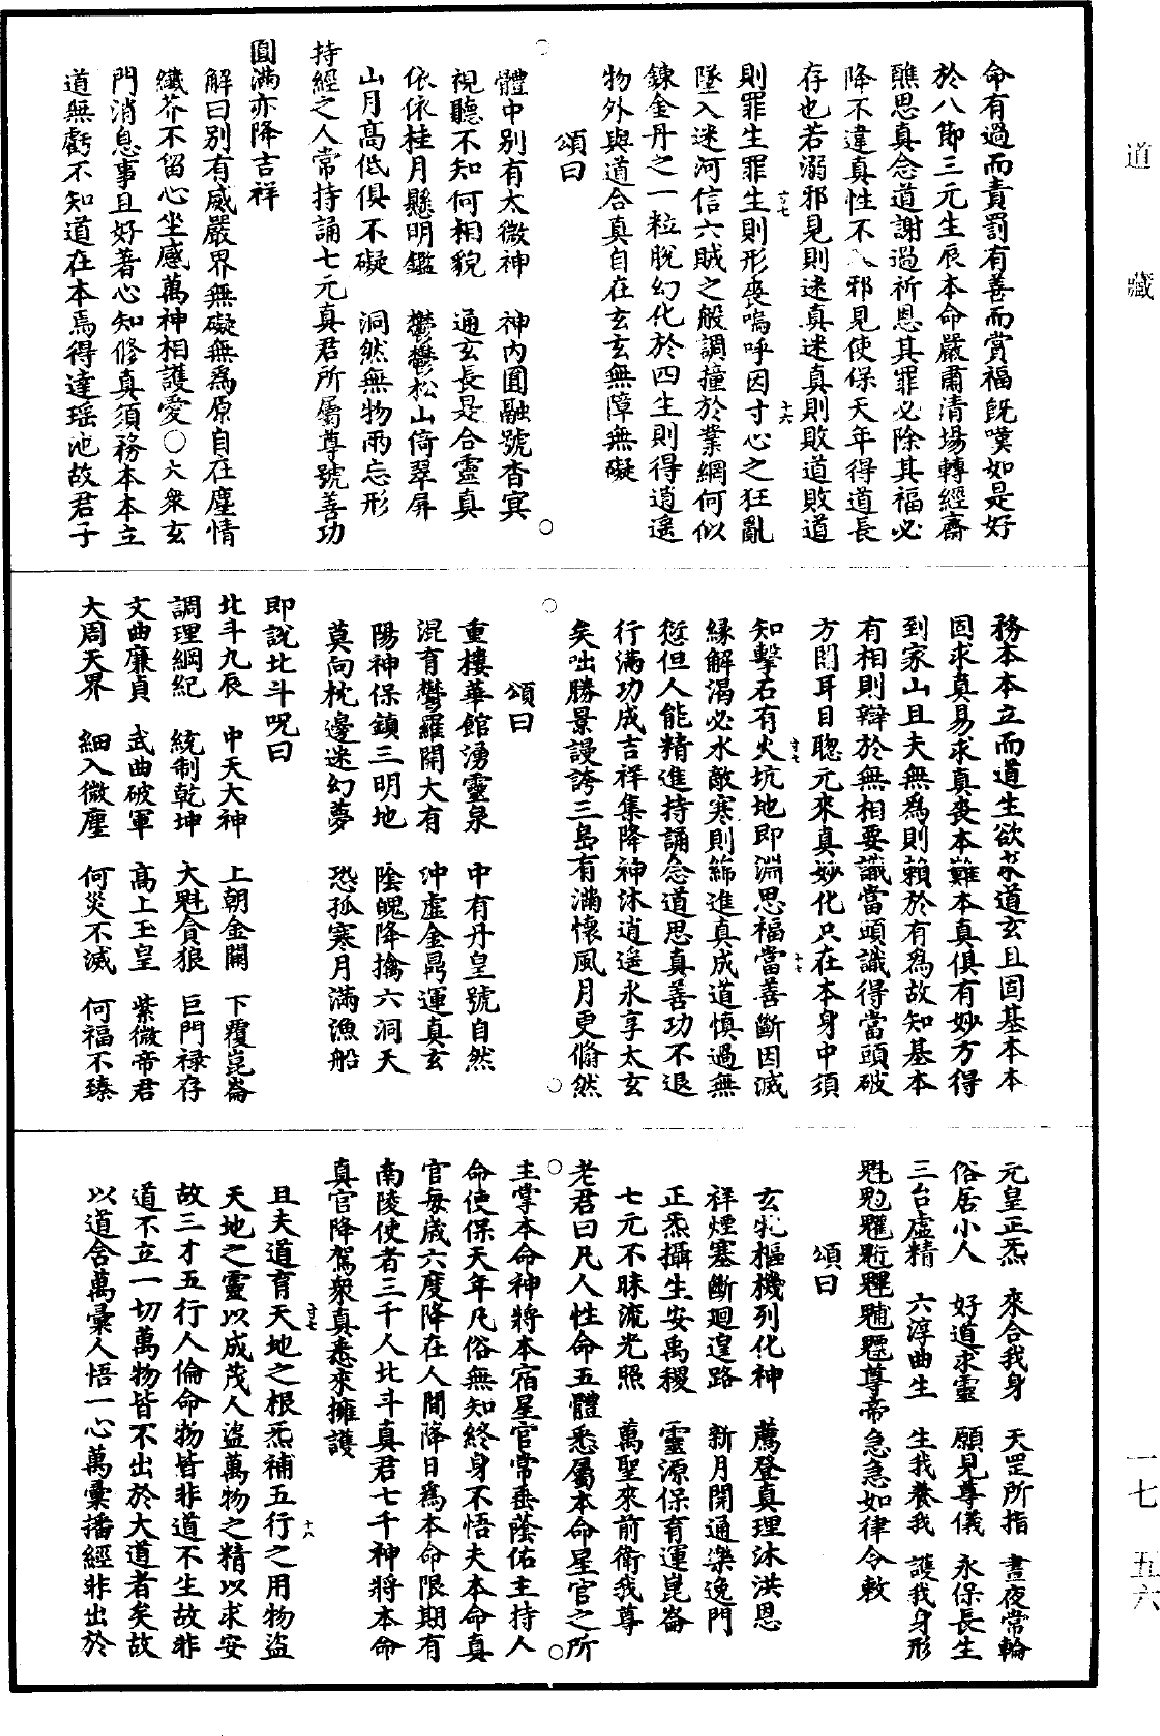 道藏
一七 五六
命有過而責罰有善而賞福旣嘆如是好
於八節三元生辰本命嚴肅清場轉經齋
醮思真念道謝過祈恩其罪必除其福必
降不違真性不入邪見使保天年得道長
存也若溺邪見則迷真迷真則敗道敗道
則罪生罪生則形喪嗚呼因寸心之狂亂
墜入迷河信六賊之般調撞於業網何似
鍊金丹之一粒脫幻化於四生則得逍遙
物外與道合真自在玄玄無障無礙
頌曰
體中別有太微神 神內圓融號杳冥
視聽不知何相貌 通玄長是合靈真
依依桂月懸明鑑 鬱鬱松山倚翠屏
山月高低俱不礙 洞然無物兩忘形
持經之人常持誦七元真君所屬尊號善功
圓滿亦降吉祥
解曰別有威嚴界無礙無為原自在塵情
纖芥不留心坐感萬神相護愛○大衆玄
門消息事且好著心知修真須務本本立
道無虧不知道在本焉得達瑶池故君子
務本本立而道生欲求道玄且固基本本
固求真易求真喪本難本真俱有妙方得
到家山且夫無為則賴於有爲故知基本
有相則辯於無相要識當頭識得當頭破
方閉耳目聰元來真妙化只在本身中須
知擊石有火坑地即淵思福當善斷因滅
緣解渴必水敵寒則綿進真成道慎過無
愆但人能精進持誦念道思真善功不退
行滿功成吉祥集降神沐逍遙永享太玄
矣咄勝景謾誇三島有滿懷風月更翛然
頌曰
重樓華館湧靈泉 中有丹皇號自然
混育鬱羅開大有 沖虛金鼎運真玄
陽神保鎮三明地 陰魄降擒六洞天
莫向枕邊迷幻夢 恐孤寒月滿漁船
即說北斗呪曰
北斗九辰 中天大神 上朝金闕 下覆崑崙
調理綱紀 統制乾坤 大魁貪狼 巨門祿存
文曲廉貞 武曲破軍 高上玉皇 紫微帝君
大周天界 細入微塵 何災不滅 何福不臻
元皇正炁 來合我身 天罡所指 晝夜常輪
俗居小人 好道求靈 願見尊儀 永保長生
三台虛精 六淳曲生 生我養我 護我身形
魁𩲃𩵄𩳐𩳙𩳌𩵆尊帝急急如律令敕
頌曰
玄牝樞機列化神 薦登真理沐洪恩
祥煙塞斷迴遑路 新月開通樂逸門
正炁攝生安禹稷 靈源保育運崑崙
七元不昧流光照 萬聖來前衛我尊
老君曰凡人性命五體悉屬本命星官之所
主掌本命神將本宿星官常垂蔭佑主持人
命使保天年凡俗無知終身不悟夫本命真
官每歲六度降在人間降日爲本命限期有
南陵使者三千人北斗真君七千神將本命
真官降駕衆真悉來擁護
且夫道育天地之根炁補五行之用物盜
天地之靈以成茂人盜萬物之精以求安
故三才五行人倫命物皆非道不生故非
道不立一切萬物皆不出於大道者矣故
以道含萬彙人悟一心萬彙播經非出於